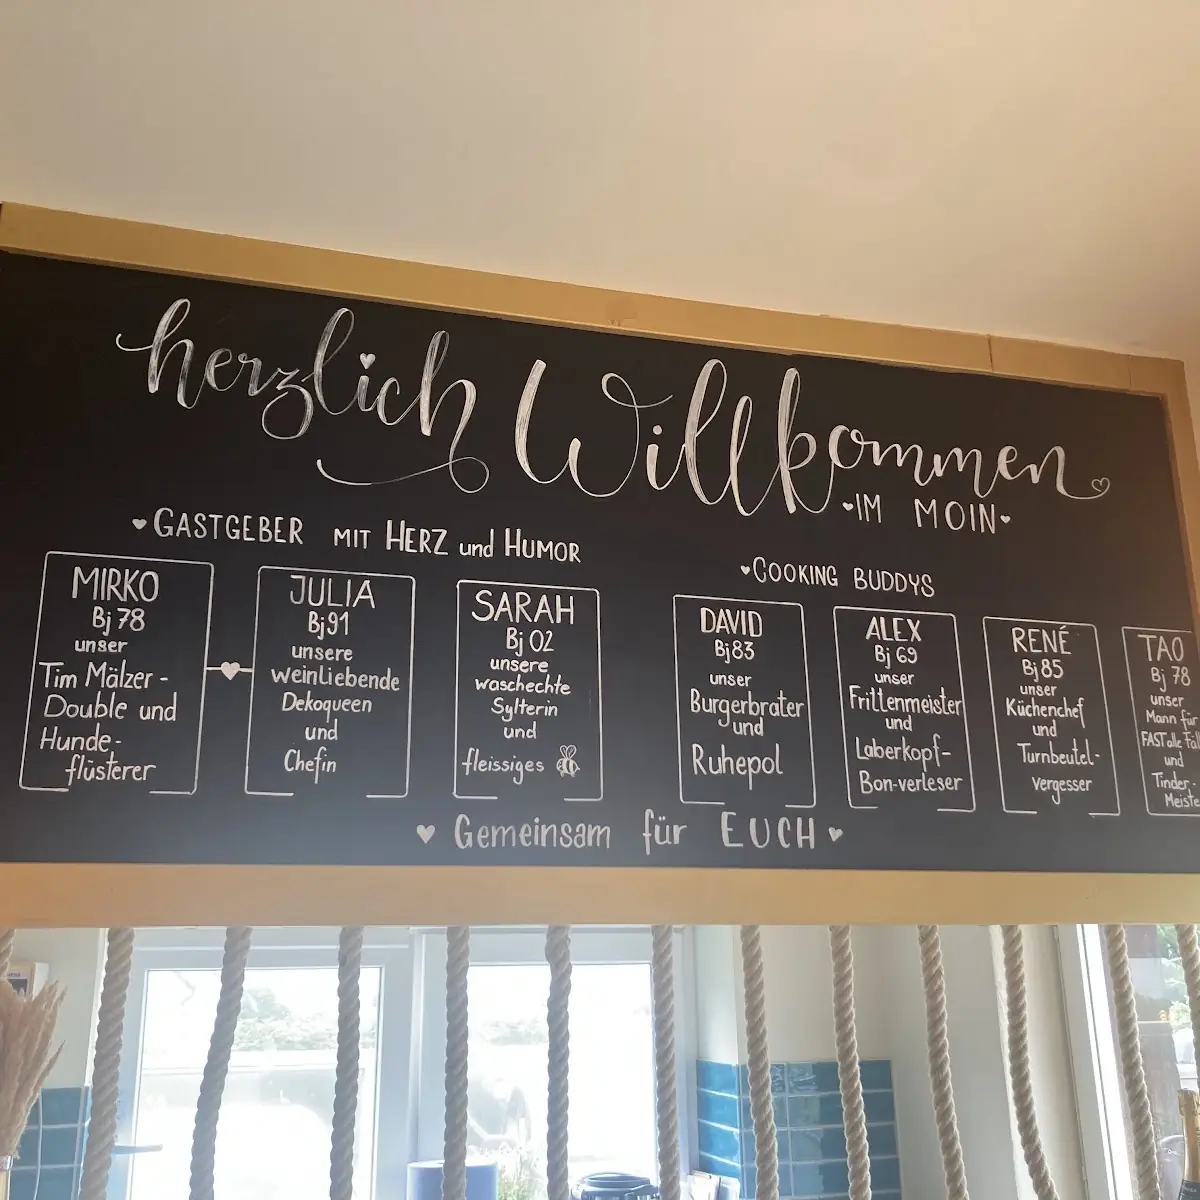 herzlich Willkommen
♥IM MOIN♥
♥GASTGEBER MIT HERZ und HUMOR
MIRKO
Bj 78
unser
Tim Mälzer-
Double und
Hunde-
flüsterer
JULIA
Bj 91
unsere
weinliebende
Dekoqueen
und
Chefin
SARAH
Bj 02
unsere
waschechte
Sylterin
und
fleissiges
♥COOKING BUDDYS
DAVID
Bj 83
unser
Burgerbrater
und
Ruhepol
ALEX
Bj 69
unser
Frittenmeister
und
Laberkopf-
Bon-verleser
RENÉ
Bj 85
unser
Küchenchef
und
Turnbeutel-
vergesser
TAO
Bj 78
unser
Mann für
FAST alle
und
Tinder-
♥ Gemeinsam für EUCH ♥